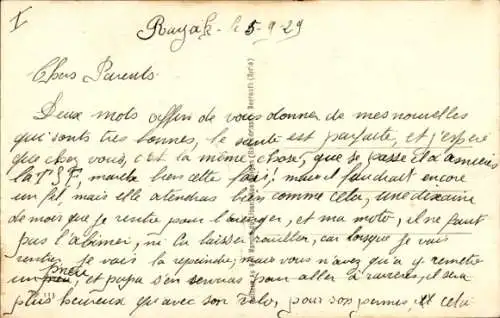 I
Rayak le 5-9-29
Chers Parents
Deux mots affin de vous donner de mes nouvelles
qui sonts très bonnes, le santé est parfaite, et j'espère
que chez vous, c'est la même chose, que se passe il d'
la T.S.F, marche bien cette fois! mais il faudrait encore
un fil, mais elle atendras bien comme cela, une dixaine
de mois que je rentre pour l'arranger, et ma moto, il ne faut
pas l'abimer, ni la laisser rouiller, car lorsque je vais
rentre je vais la repeindre, mais vous n'avez qu'a y remettre
un pneu, et papa s'en serviras pour aller à il sera
plus heureux qu'avec son vélo, pour son permis, et cela